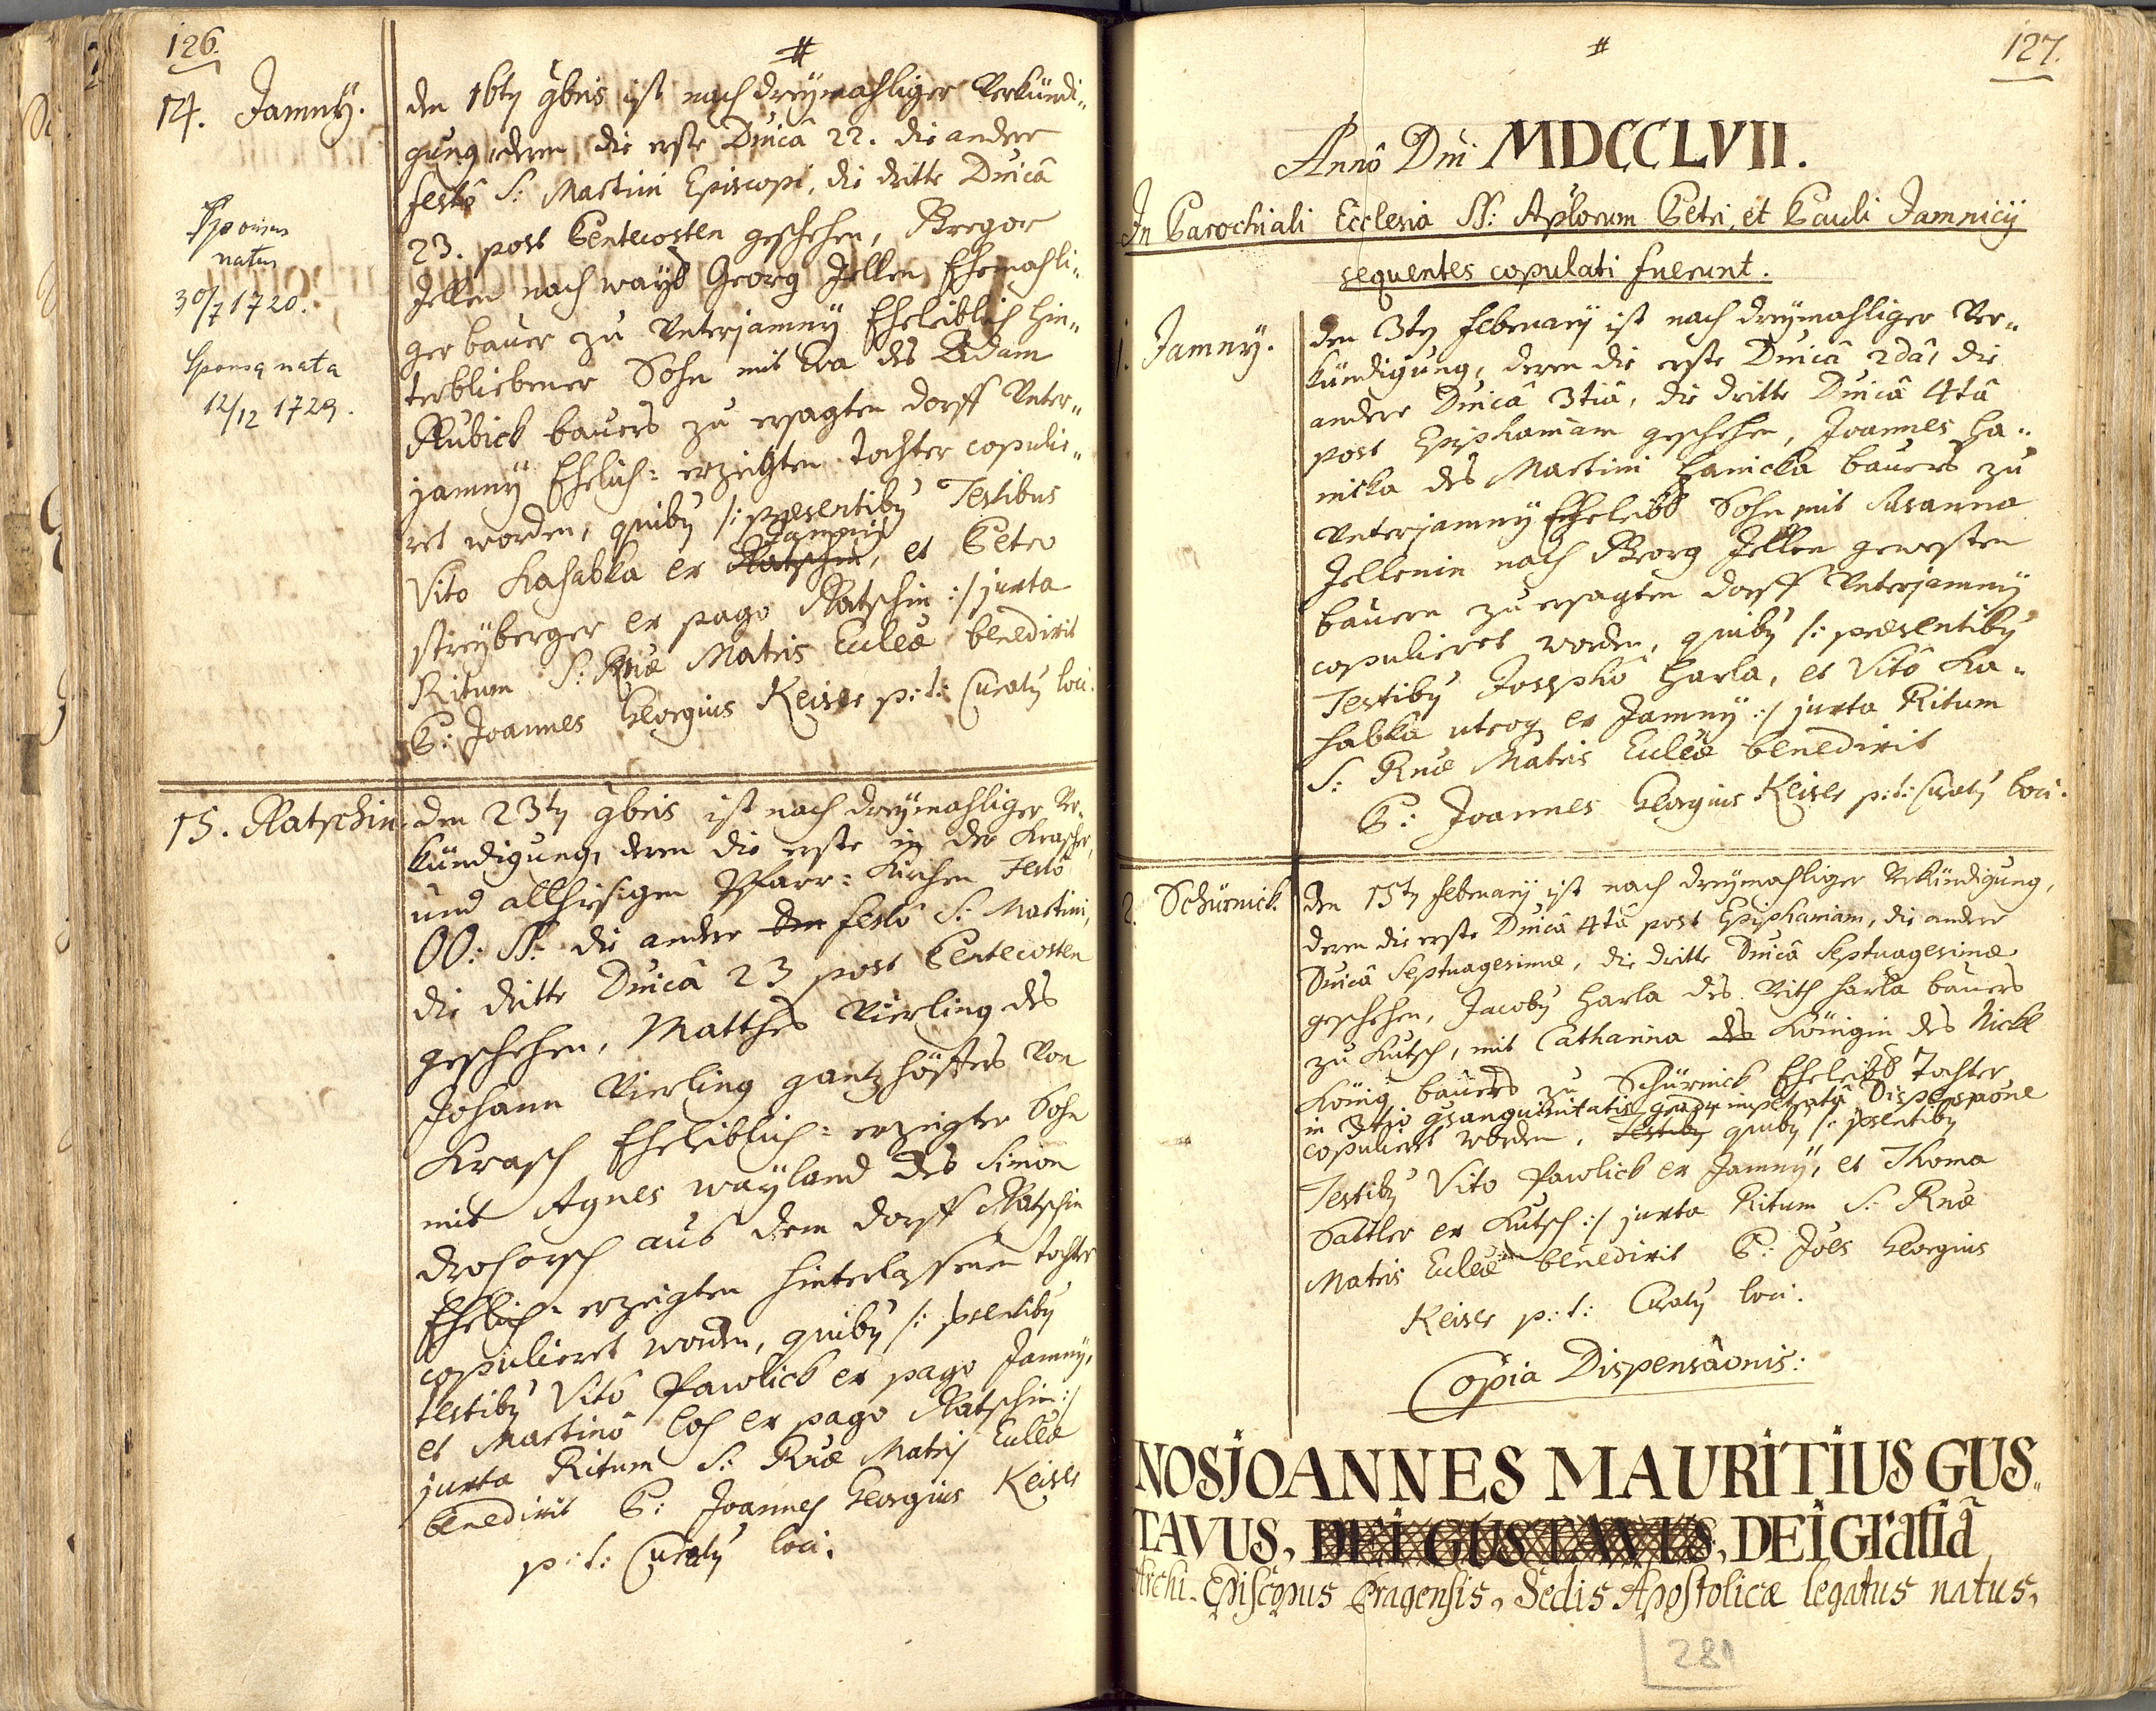 126.
#
14. Jamnÿ.
Sponsus
natus
30/7 1720.
Sponsa nata
12/12 1729.
den 16tn 9bris ist nach dreÿmahliger Verkündi„
gung, deren die erste Dnicâ 22. die andere
festô S: Martini Episcopi, die dritte Dnicâ
23. post Pentecosten geschehen, Gregor
Jellen nach wayl Georg Jellen Ehemahli„
ger bauer zu Unterjamnÿ Eheleiblich hin„
terbliebener Sohn mit Eva des Adam
Kubick bauers zu ersagten dorff Unter„
jamnÿ Ehelich: erzeigten tochter copulie„
ret worden, quibq /: praesentibq Testibus
Vito Kahabka ex Jamnÿ Ratschin, et Petro
streÿberger ex pago Ratschin :/ juxta
Ritum S: Rnae Matris Eccleae benedixit
P: Joannes Georgius Keiser p: t: Curatq loci.
15. Ratschin.
den 23tn 9bris ist nach dreÿmahliger Ver„
kündigung, deren die erste in der Krascher,
und allhiesigen Pfarr: Kirchen Festô
OO: SS: die andere den festô S: Martini,
die dritte Dnicâ 23 post Pentecosten
geschehen, Matthes Vierling des
Johann Vierling gantz höffters von
Krasch Eheleiblich: erzeigter Sohn
mit Agnes waÿland des Simon
Drosch aus dem dorff Ratschin
Ehelich: erzeigten hinterlassenen tochter
copulieret worden, quibq /: psentibq
testibq Vitô Pawlick ex pago Jamnÿ,
et Martinô Loh ex pago Ratschin :/
juxta Ritum S: Rnae Matris Eccleae
benedixit P: Joannes Georgius Keiser
p: t: Curatq loci.
#
127.
Annô Dni MDCCLVII.
In Parochiali Ecclesia SS: Aplorum Petri, et Pauli Jamnicij
sequentes copulati fuerunt.
1. Jamnÿ.
den 3tn Februarÿ ist nach dreÿmahliger Ver„
kündigung, deren die erste Dnicâ 2dâ, die
andere Dnicâ 3tiâ, die dritte Dnicâ 4tâ
post Epiphaniam geschehen, Joannes Ha„
nicka des Martini Hanicka bauers zu
Unterjamnÿ Eheleibl Sohn mit Susanna
Jellenin nach Georg Jellen gewesten
bauern zu ersagten dorff Unterjamnÿ
copulieret worden, quibq /: praesentibq
Testibq Josephô Harla, et Vitô Ka„
habka utroq ex Jamnÿ :/ juxta Ritum
S: Rnae Matris Eccleae benedixit
P: Joannes Georgius Keiser p: t: Curatq loci.
2. Schürnick.
den 15tn Februarÿ ist nach dreÿmahliger Verkündigung,
deren die erste Dnicâ 4tâ post Epiphaniam, die andere
Dnicâ Septuagesimae, die dritte Dnicâ Septuagesimae
geschehen, Jacobq Harla des Veith Harla bauers
zu Kutsch, mit Catharina des Königin des Nickl
König bauers zu Schürnick Eheleibl Tochter
in 3tio gsanguinitatis gradu impetratâ Dispensaône
copulieret worden, Testibq quibq /: psentibq
Testibq Vito Pawlick ex Jamnÿ, et Thoma
Sattler ex Kutsch :/ juxta Ritum S: Rnae
Matris Eccleae benedixit P: Joês Georgius
Keiser p: t: Curatq loci.
Copia Dispensaônis:
NOS JOANNES MAURITIUS GUS„
TAVUS, DEI GUSTAVUS, DEI Gratiâ
Archi-Episcopus Pragensis, Sedis Apostolicae legatus natus,
281